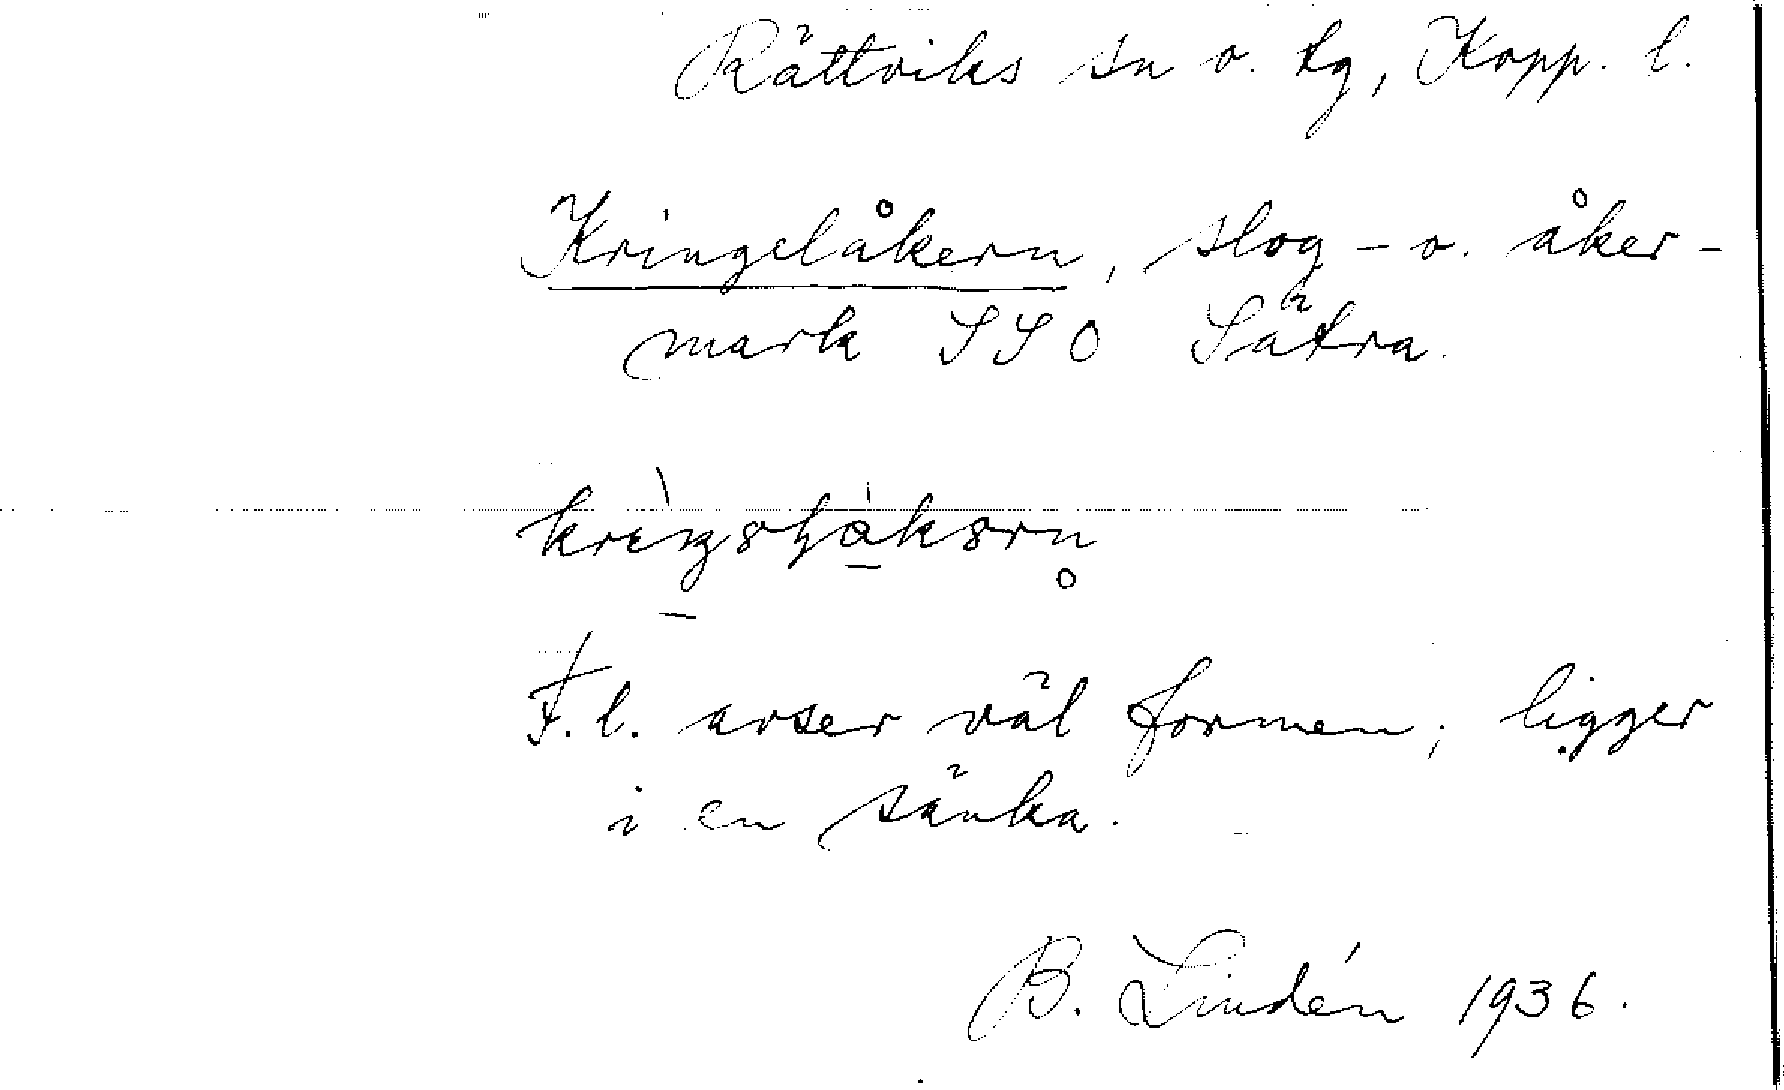 Rättviks sn o. tg, Kopp. l.
Kringelåkern, slog- o. åker-
mark SSO Sätra.
F.l. avser väl formen; ligger
i en sänka.
B. Lindén 1936.